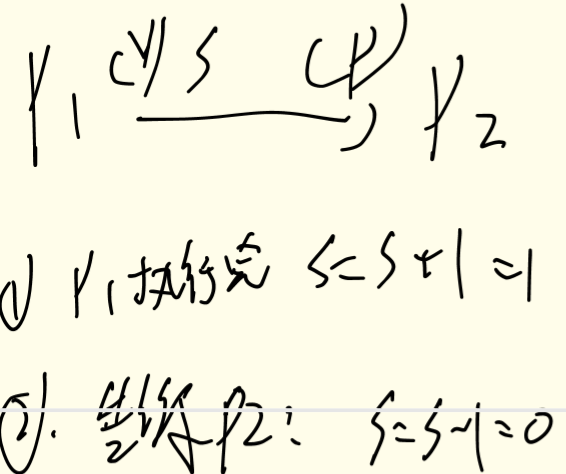 P₁ (V) S (P) P₂
① P₁执行完 S=S+1=1
②. P2: S=S-1=0